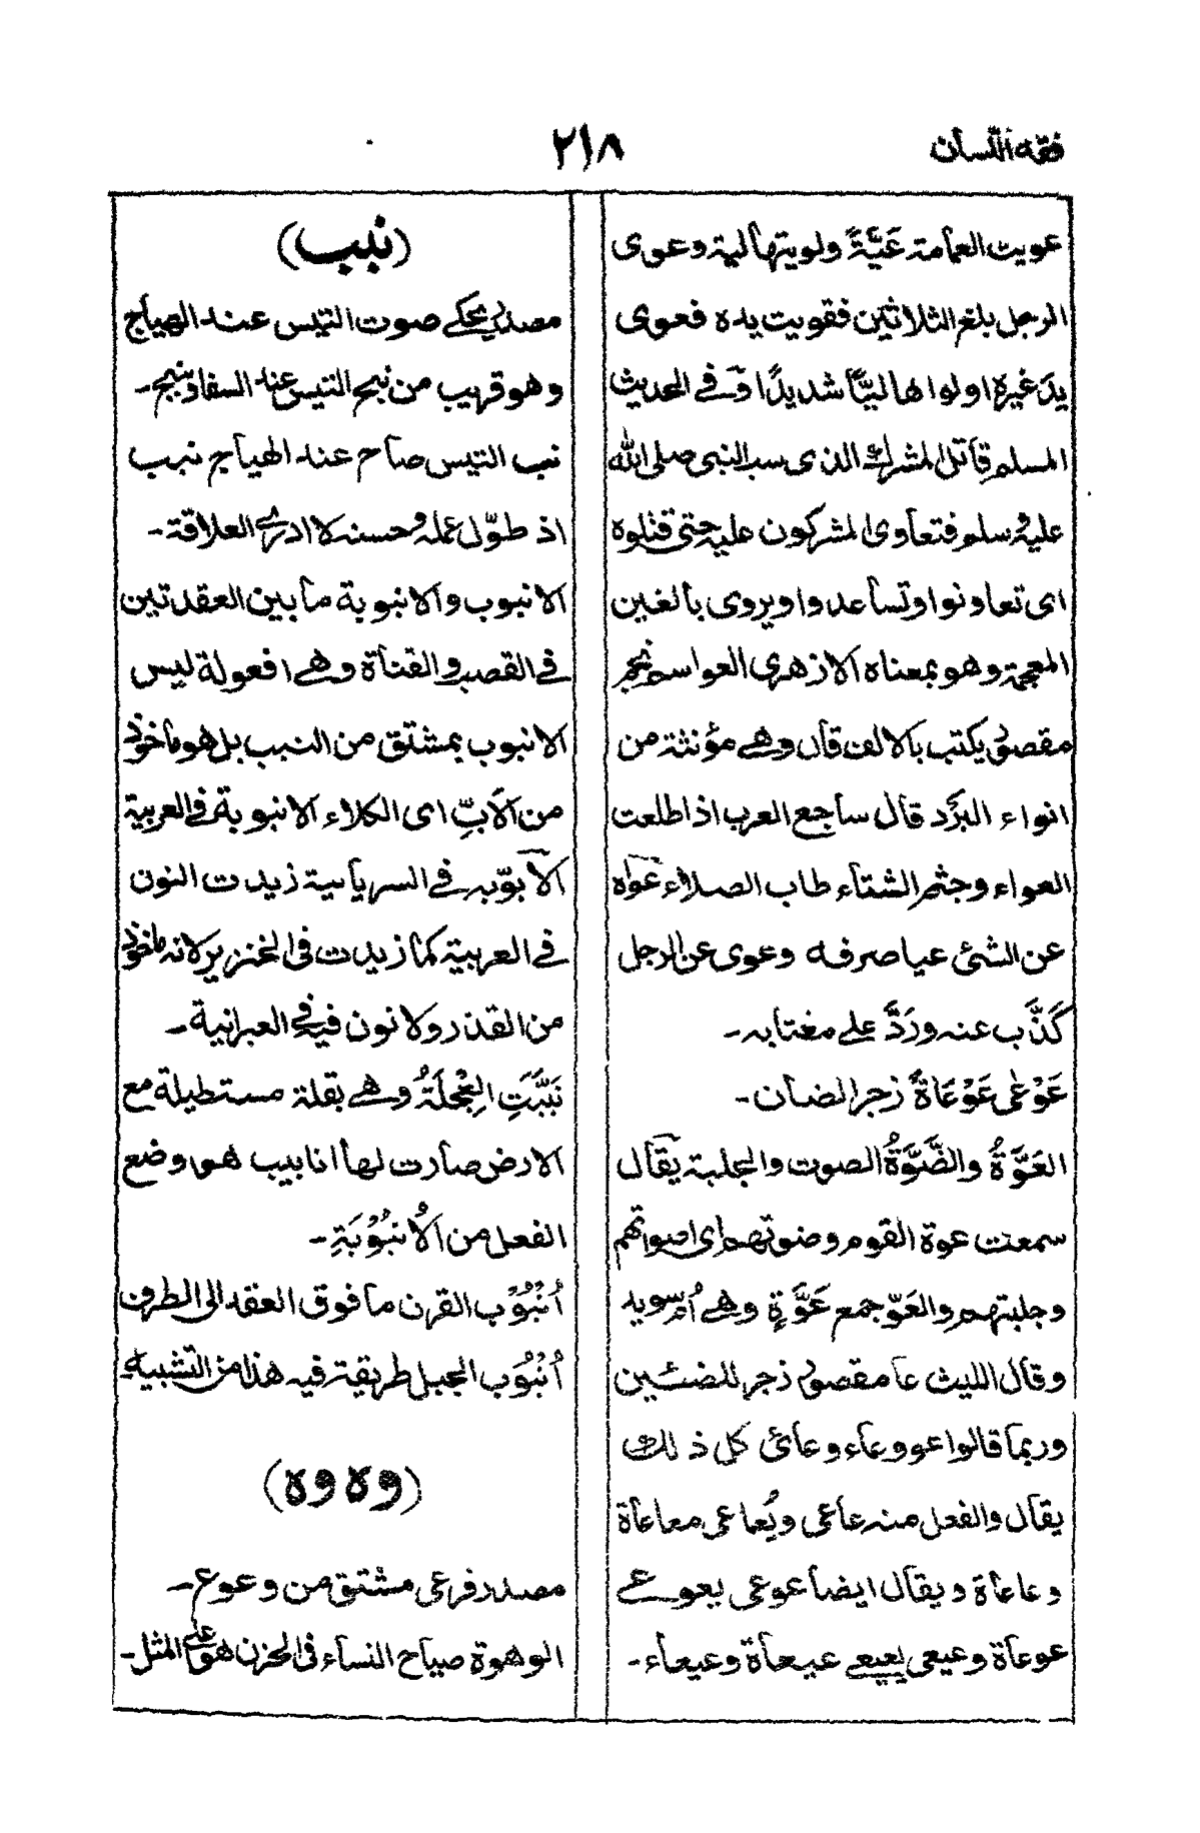 فقه اللسان
٢١٨
عويت العمامة عَيَّةً ولويتها لية وعوى
الرجل بلغ الثلاثين فقويت يده فعوى
يد غيره اولواها ليًّا شديدًا وفى الحديث
المسلم قاتل المشرك الذى سب النبى صلى الله
عليه وسلم فتعاوى المشركون عليه حتى قتلوه
اى تعاونوا وتساعدوا ويروى بالغين
المعجمة وهو بمعناه الازهرى العوا اسم نجم
مقصور يكتب بالالف قال وهى مؤنثة من
انواء البَرْد قال ساجع العرب اذا طلعت
العواء وجثم الشتاء طاب الصلاء عَوَاه
عن الشئ عيا صرفه وعوى عن الرجل
كَذَّب عنه ورَدَّ على مغتابه۔
عَوْعٰى عَوْعَاةً زجر الضان۔
العَوَّةُ والضَّوَّةُ الصوت والجلبة يقال
سمعت عوة القوم وضوتهم اى اصواتهم
وجلبتهم والعَوّ جمع عَوَّةٍ وهى اُم سويد
وقال الليث عا مقصور زجر للضئين
وربما قالوا عو وعاء وعائ كل ذلك
يقال والفعل منه عاعى ويُعاعى معاعاة
وعاعاة ويقال ايضا عوعى يعوعى
عوعاة وعيعى يعيعى عيعاة وعيعاء۔
(نبب)
مصدر يحكى صوت التيس عند الهياج
وهو قريب من نبح التيس عند السفاد ينبح۔
نب التيس صاح عند الهياج نبب
اذ طوّل عمله وحسنه لا ادرى العلاقة۔
الانبوب والانبوبة ما بين العقدتين
فى القصب والقناة وهى افعولة ليس
الانبوب بمشتق من النبب بل هو ماخوذ
من الاَبِّ اى الكلاء الانبوبة فى العربية
الآبوّبه فى السريانية زيدت النون
فى العربية كما زيدت فى الخنزير لانه ماخوذ
من القذر ولا نون فيه فى العبرانية۔
نَبَّبَتِ العِجْلَةُ وهى بقلة مستطيلة مع
الارض صارت لها انابيب هو وضع
الفعل من الاُنبُوْبَةِ۔
اُنْبُوْب القرن ما فوق العقد الى الطرف
اُنْبُوْب الجبل طريقة فيه هذا من التشبيه
(وه وه)
مصدر فرعى مشتق من وعوع۔
الوهوة صياح النساء فى الحزن هو على المثل۔